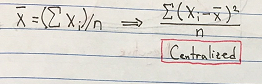 x̄ = (Σ Xᵢ)/n ⟹ Σ(Xᵢ-x̄)²/n
Centralized